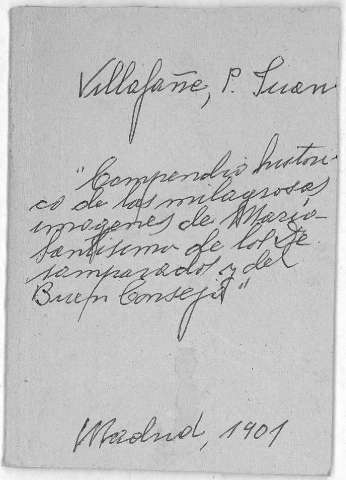 Villafañe, P. Juan
"Compendio histori
co de las milagrosas
imagenes de Maria
Santisima de los De
samparados y del
Buen Consejo"
Madrid, 1901